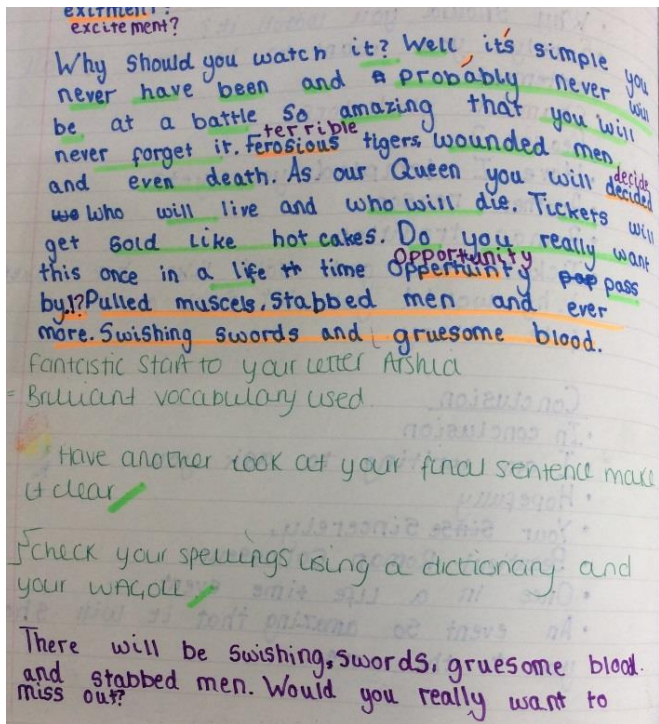 excitment?
excitement?
Why should you watch it? Well it's simple you
never have been and probably never will
be at a battle so amazing that you will
terrible
never forget it. Ferosious tigers, wounded men
and even death. As our Queen you will decided
decide
who will live and who will die. Tickets will
get sold like hot cakes. Do you really want
opportunity
this once in a life time oppertuinty pass
by!?Pulled muscels, stabbed men and ever
more. Swishing swords and gruesome blood.
Fantastic start to your letter Arshia
= Brilliant vocabulary used.
Have another look at your final sentence make
it clear
check your spellings using a dictionary and
your WAGOLL
There will be swishing, swords, gruesome blood.
and stabbed men. Would you really want to
miss out?